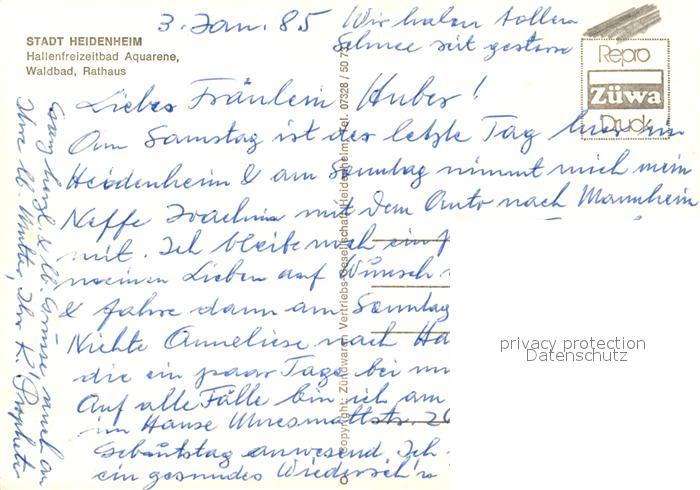 3. Jan. 85 Wir haben tollen
Schnee seit gestern
STADT HEIDENHEIM
Hallenfreizeitbad Aquarene,
Waldbad, Rathaus
Repro
Züwa
Druck
Liebes Fräulein Huber!
Am Samstag ist der letzte Tag hier in
Heidenheim & am Sonntag nimmt mich mein
Neffe Joachim mit dem Auto nach Mannheim
mit. Ich bleibe noch ein
meinen Lieben auf Wunsch
& fahre dann am Sonntag
Nichte Anneliese nach Ha
die ein paar Tage bei
Auf alle Fälle bin ich am
im Hause 20
Geburtstag anwesend. Ich
ein gesundes
Ganz herzl. & lb. Grüsse auch an
Ihre lb. Mutter, Ihr K.
Copyright: Zündwaren Vertriebs-Gesellschaft Heidenheim, Tel. 07328 / 50 73
privacy protection
Datenschutz